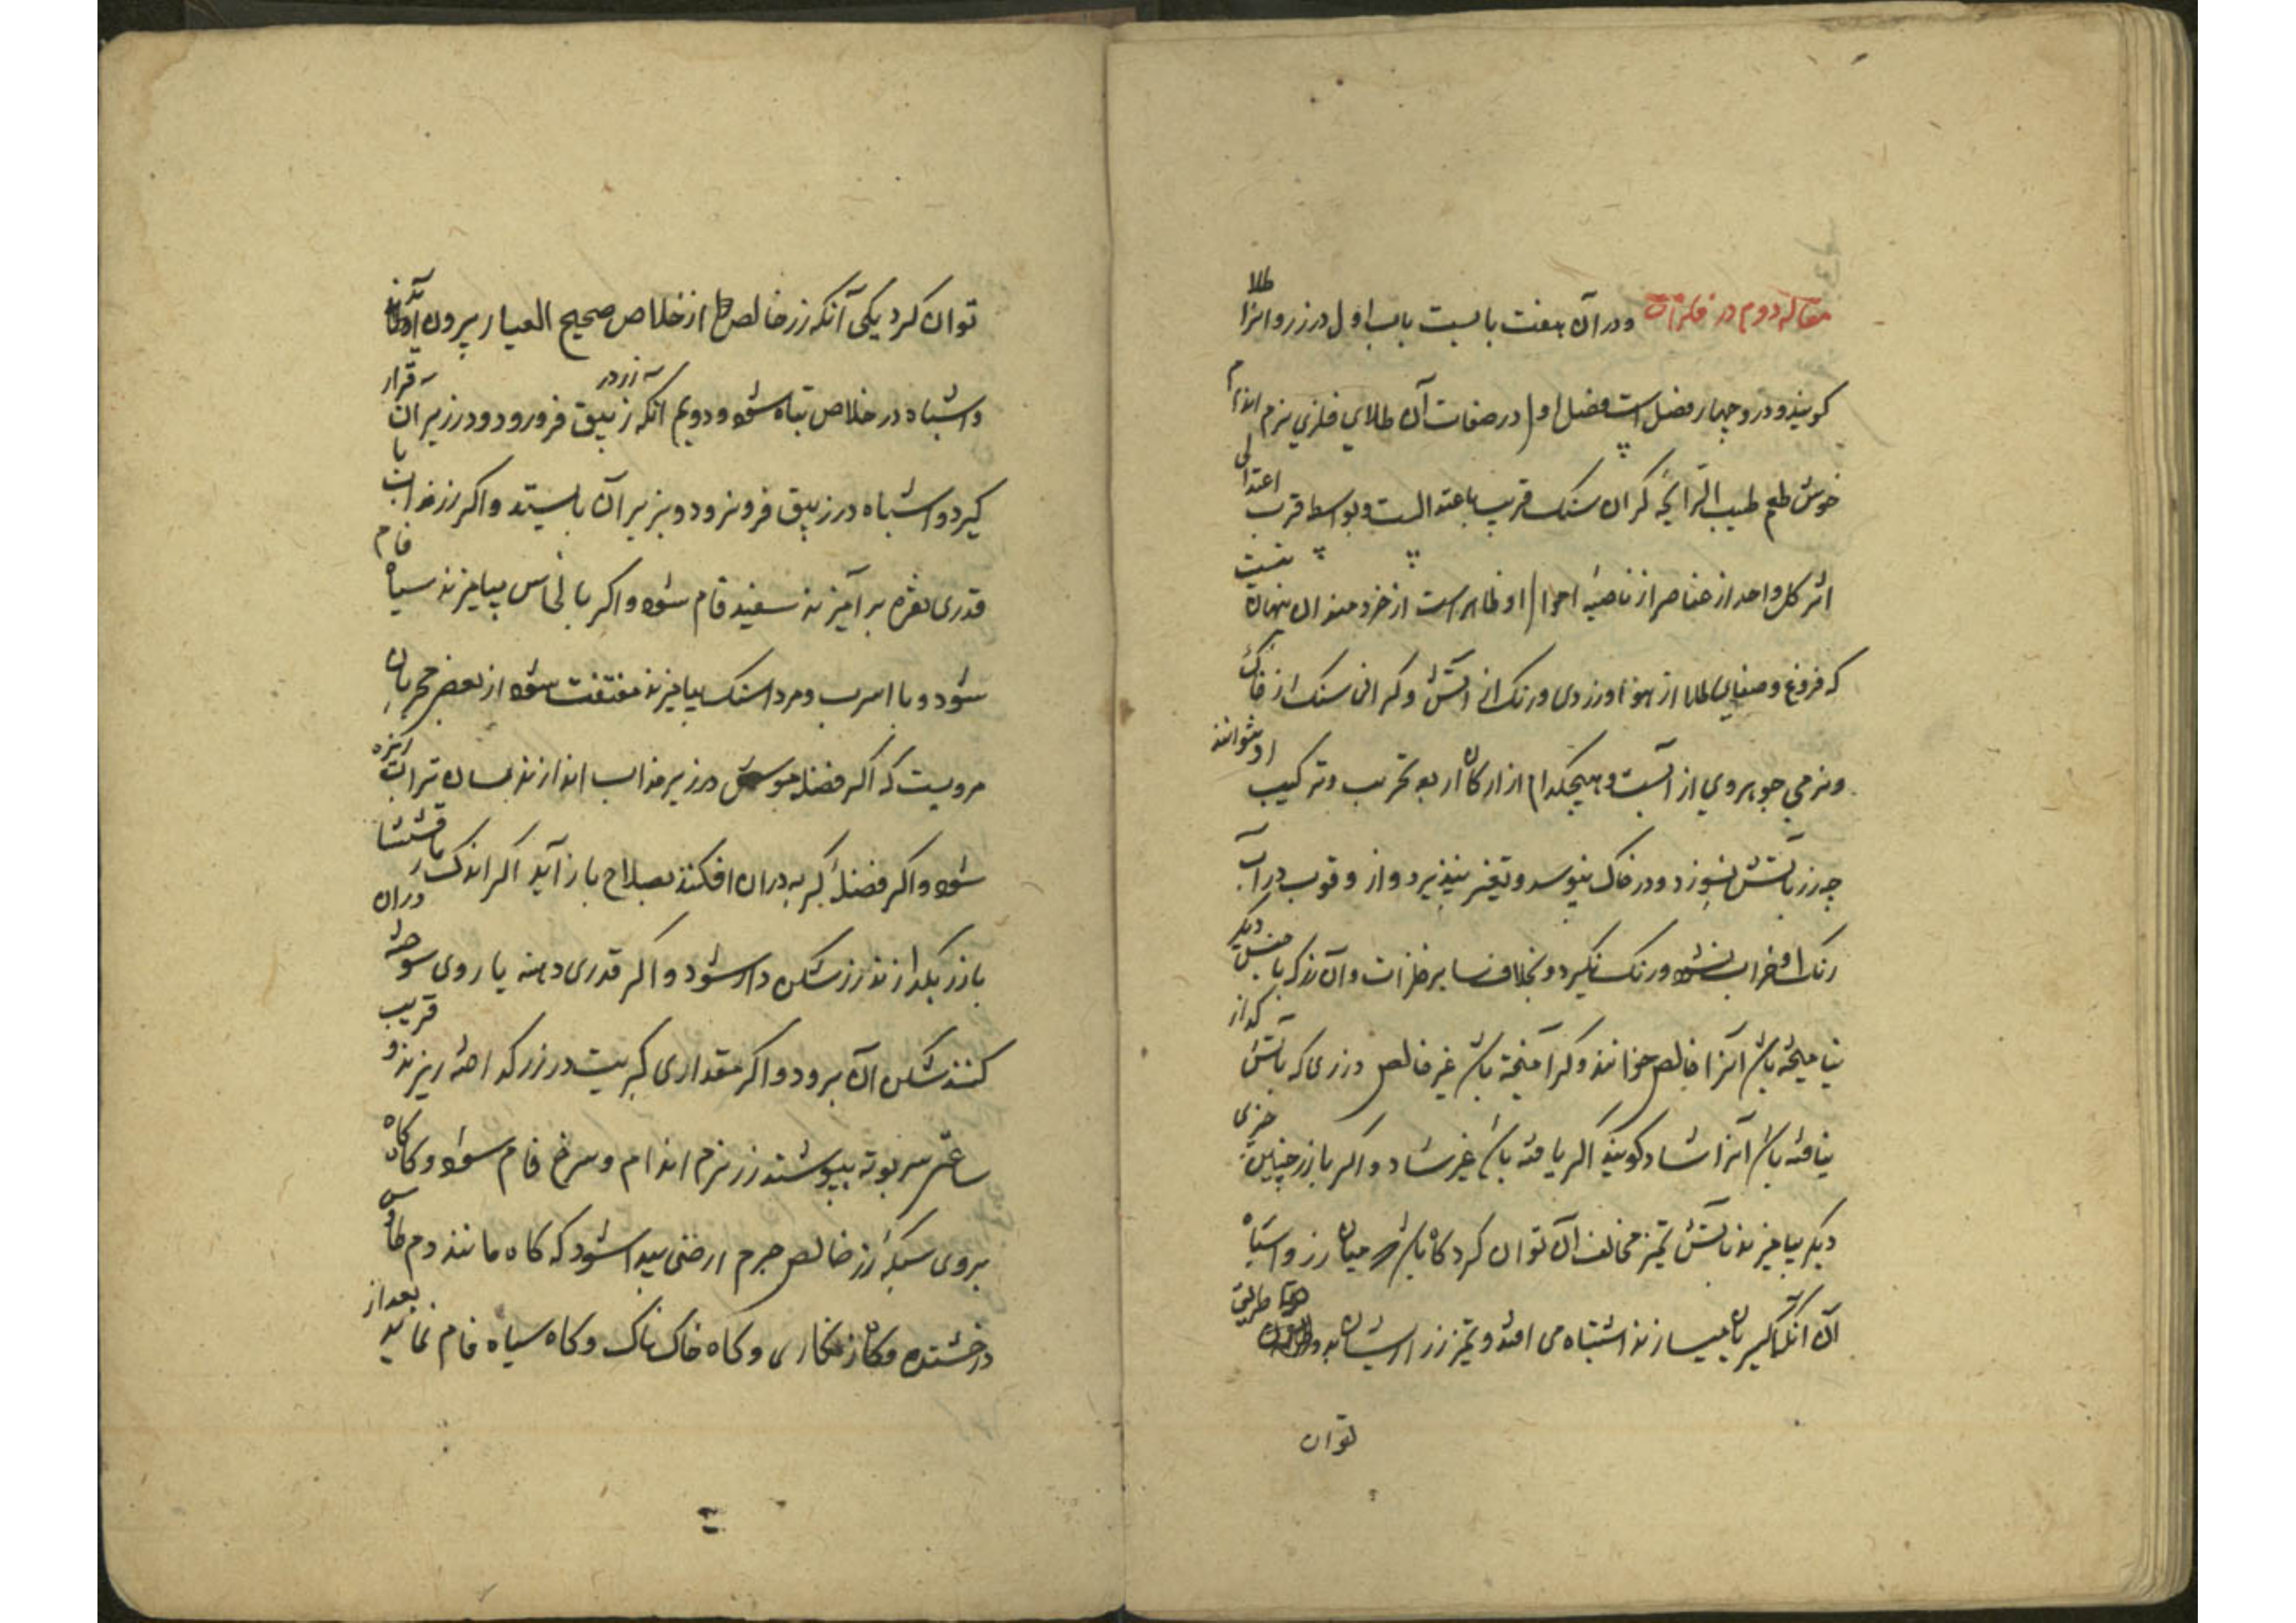 مقاله دوم در فلزات و در آن هفت بابست باب اول در زر و انرا طلا
کویند و در و چهار فصل است فصل اول در صفات آن طلای فلزی نرم اندام
خوش طعم طیب الرایحه کران سنک قریب باعتدالست و بواسطه قرب اعتدالی
اثر کل واحد از عناصر از ناصیه احوال او ظاهر است از خردمندان پنهان نیست
که فروغ و صفای طلا از هوا و زردی و رنک از آتش و کرانی سنک از خاک
و نرمی جوهر وی از آبست و هیچکدام از ارکان اربعه تخریب و ترکیب او نتوانند
چه زر بآتش نسوزد و در خاک نپوسد و تغیر نپذیرد و از وقوب در آب
رنک او خراب نشود و رنک نکیرد و بخلاف سایر فلزات و آن زر که با جنس دیکر
نیامیخته باشد آنرا خالص خوانند و کر آمیخته باشد غیر خالص و زری که بآتش کداز
نیافته باشد آنرا شاد کویند اکر یافته باشد غیر شاد و اکر با زر چنین چیزی
دیکر بیامیزند بآتش تمیز مخالف آن توان کرد کاه باشد میان زر و اشباه
آن که اکسیریان میسازند اشتباه می افتد و تمیز زر از اشباه بدو طریق
توان
توان کرد یکی آنکه زر خالص از خلاص صحیح العیار بیرون آید
و اشباه در خلاص تباه شود و دویم انکه زر در زیبق فرو رود و در زیر آن قرار
کیرد و اشباه در زیبق فرو نرود و بر زیر آن بایستد و اکر زر مذاب با
قدری نقره بر آمیزند سفید فام شود و اکر با نحاس بیامیزند سیاه فام
شود و با اسرب و مرداسنک بیامیزند متفتت شود از بعض مجربان
مرویست که اکر فضله موش در زیر مذاب اندازند بسان تراب ریزه
شود و اکر فضله کربه دران افکنند بصلاح باز آید اکر اندک مارقشیشا
با زر بکدازند زر شکن دار شود و اکر قدری دهنه یا روی سوخته دران
کنند شکن آن برود و اکر مقداری کبریت در زر کداخته ریزند و قریب
ساعتی سر بوته بپوشند زر نرم اندام و سرخ فام شود و کاه کاه
بروی سبکه زر خالص جرم ارضی پیدا شود که کاه مانند دم طاوس
درخشنده و کاه زنکاری و کاه خاک ناک و کاه سیاه فام نماید بعد از